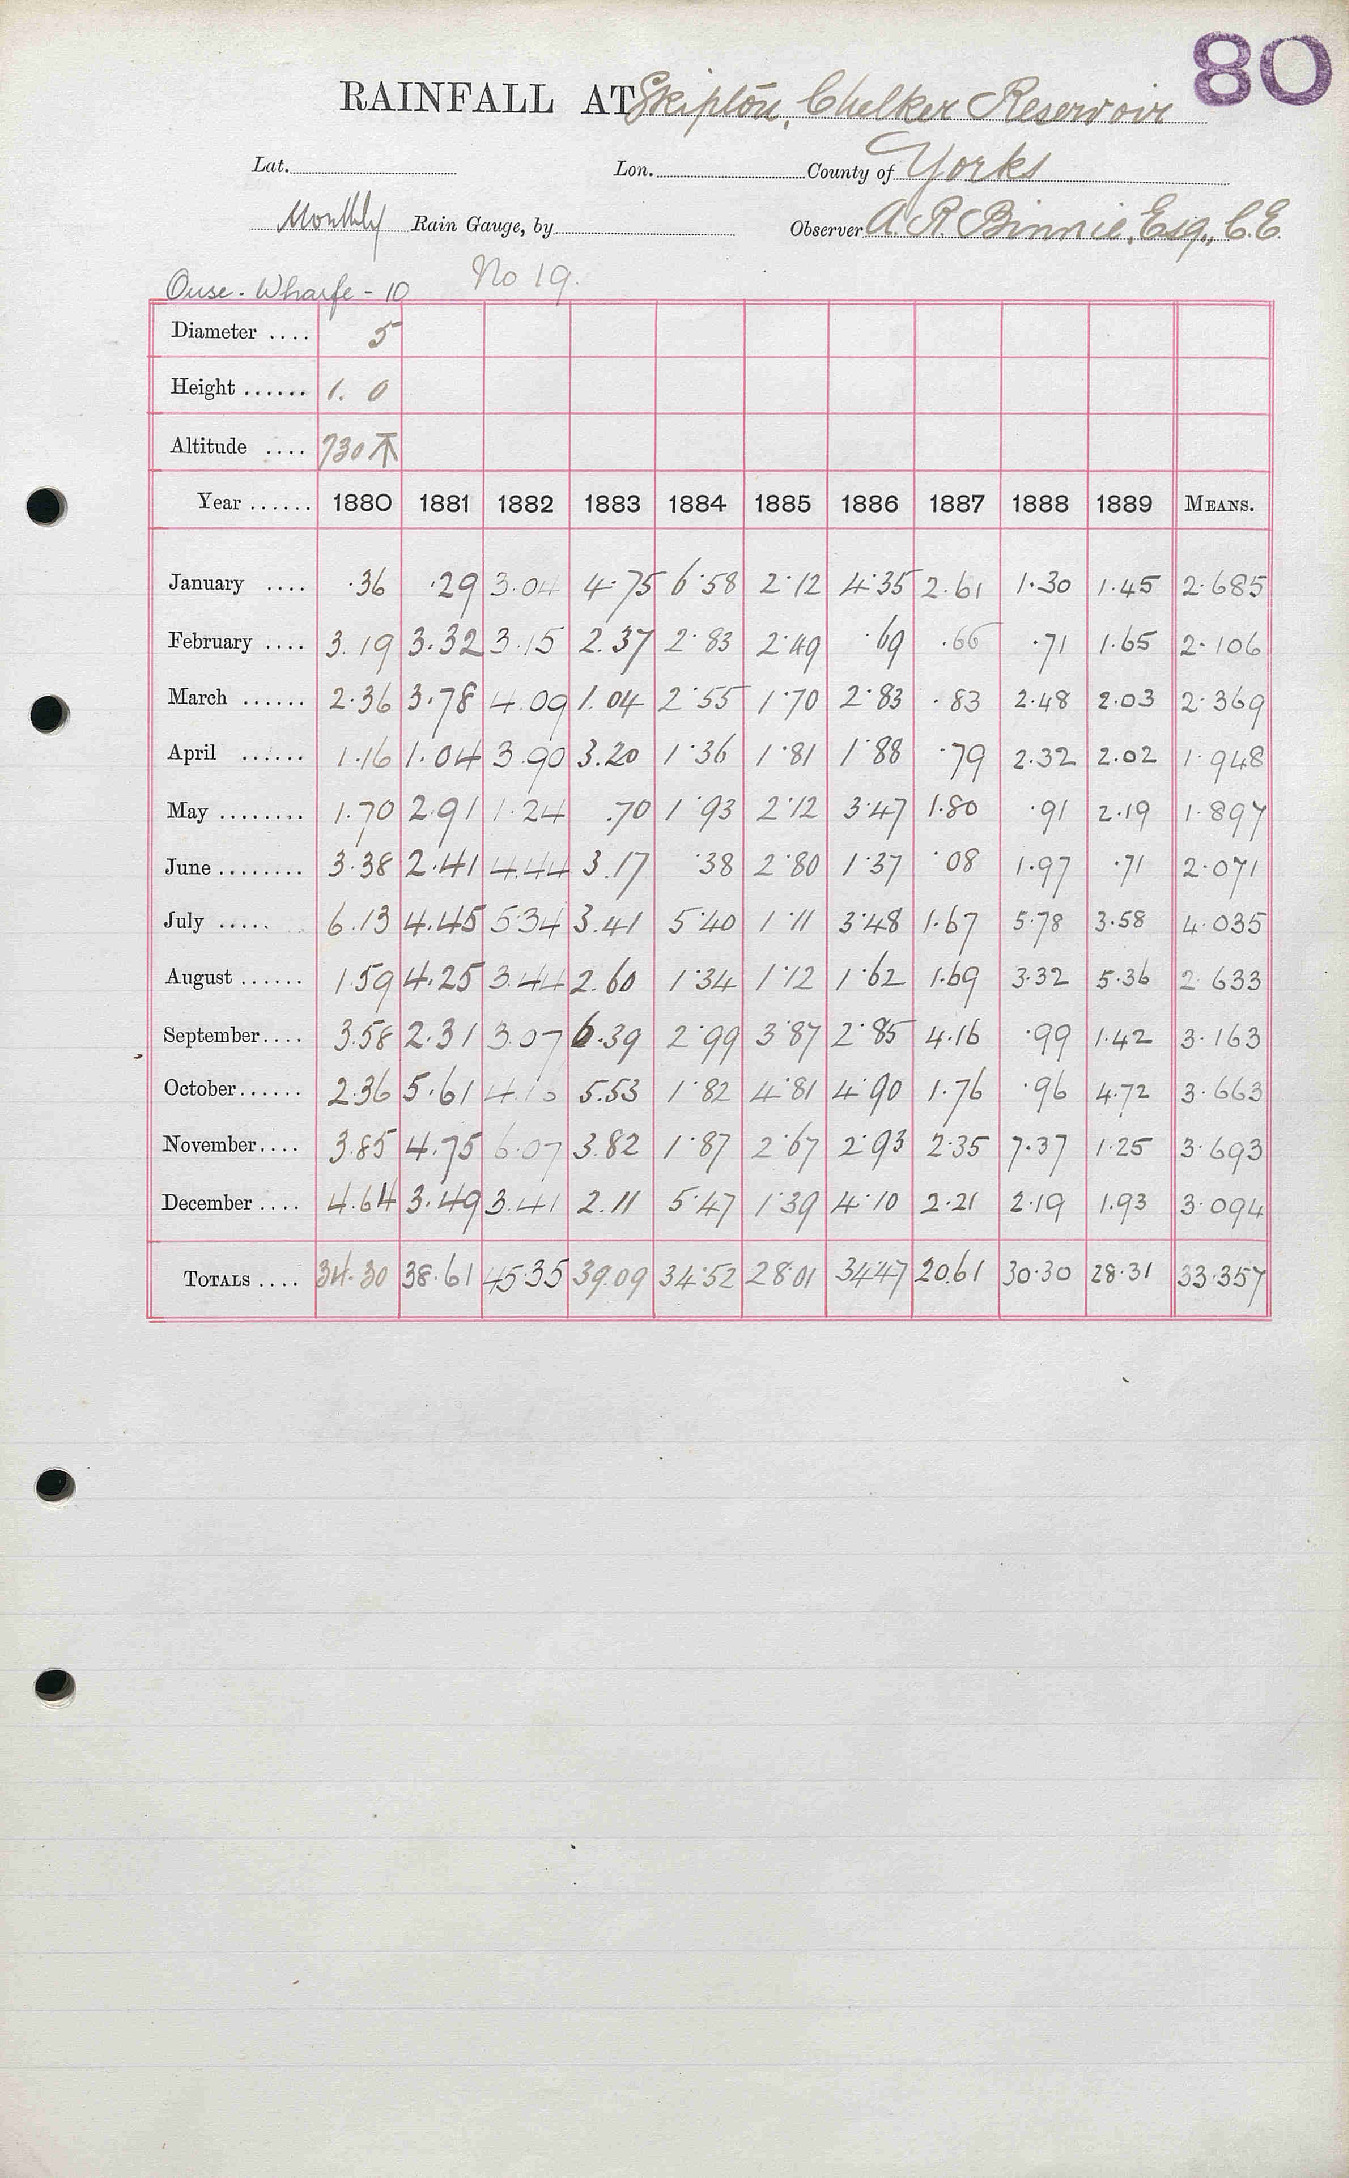 80
RAINFALL AT Skipton, Chelker Reservoir
Lat. Lon. County of Yorks
Monthly Rain Gauge, by Observer A. R. Binnie, Esq., C.E.
Ouse. Wharfe - 10 No 19.
Diameter .... 5
Height ...... 1. 0
Altitude .... 730 T
Year ...... 1880 1881 1882 1883 1884 1885 1886 1887 1888 1889 MEANS.
January .... .36 .29 3.04 4.75 6.58 2.12 4.35 2.61 1.30 1.45 2.685
February .... 3.19 3.32 3.15 2.37 2.83 2.49 .69 .66 .71 1.65 2.106
March ...... 2.36 3.78 4.09 1.04 2.55 1.70 2.83 .83 2.48 2.03 2.369
April ...... 1.16 1.04 3.90 3.20 1.36 1.81 1.88 .79 2.32 2.02 1.948
May ........ 1.70 2.91 1.24 .70 1.93 2.12 3.47 1.80 .91 2.19 1.897
June ........ 3.38 2.41 4.44 3.17 .38 2.80 1.37 .08 1.97 .71 2.071
July ..... 6.13 4.45 5.34 3.41 5.40 1.11 3.48 1.67 5.78 3.58 4.035
August ...... 1.59 4.25 3.44 2.60 1.34 1.12 1.62 1.69 3.32 5.36 2.633
September.... 3.58 2.31 3.07 6.39 2.99 3.87 2.85 4.16 .99 1.42 3.163
October...... 2.36 5.61 4.16 5.53 1.82 4.81 4.90 1.76 .96 4.72 3.663
November.... 3.85 4.75 6.07 3.82 1.87 2.67 2.93 2.35 7.37 1.25 3.693
December .... 4.64 3.49 3.41 2.11 5.47 1.39 4.10 2.21 2.19 1.93 3.094
TOTALS .... 34.30 38.61 45.35 39.09 34.52 28.01 34.47 20.61 30.30 28.31 33.357